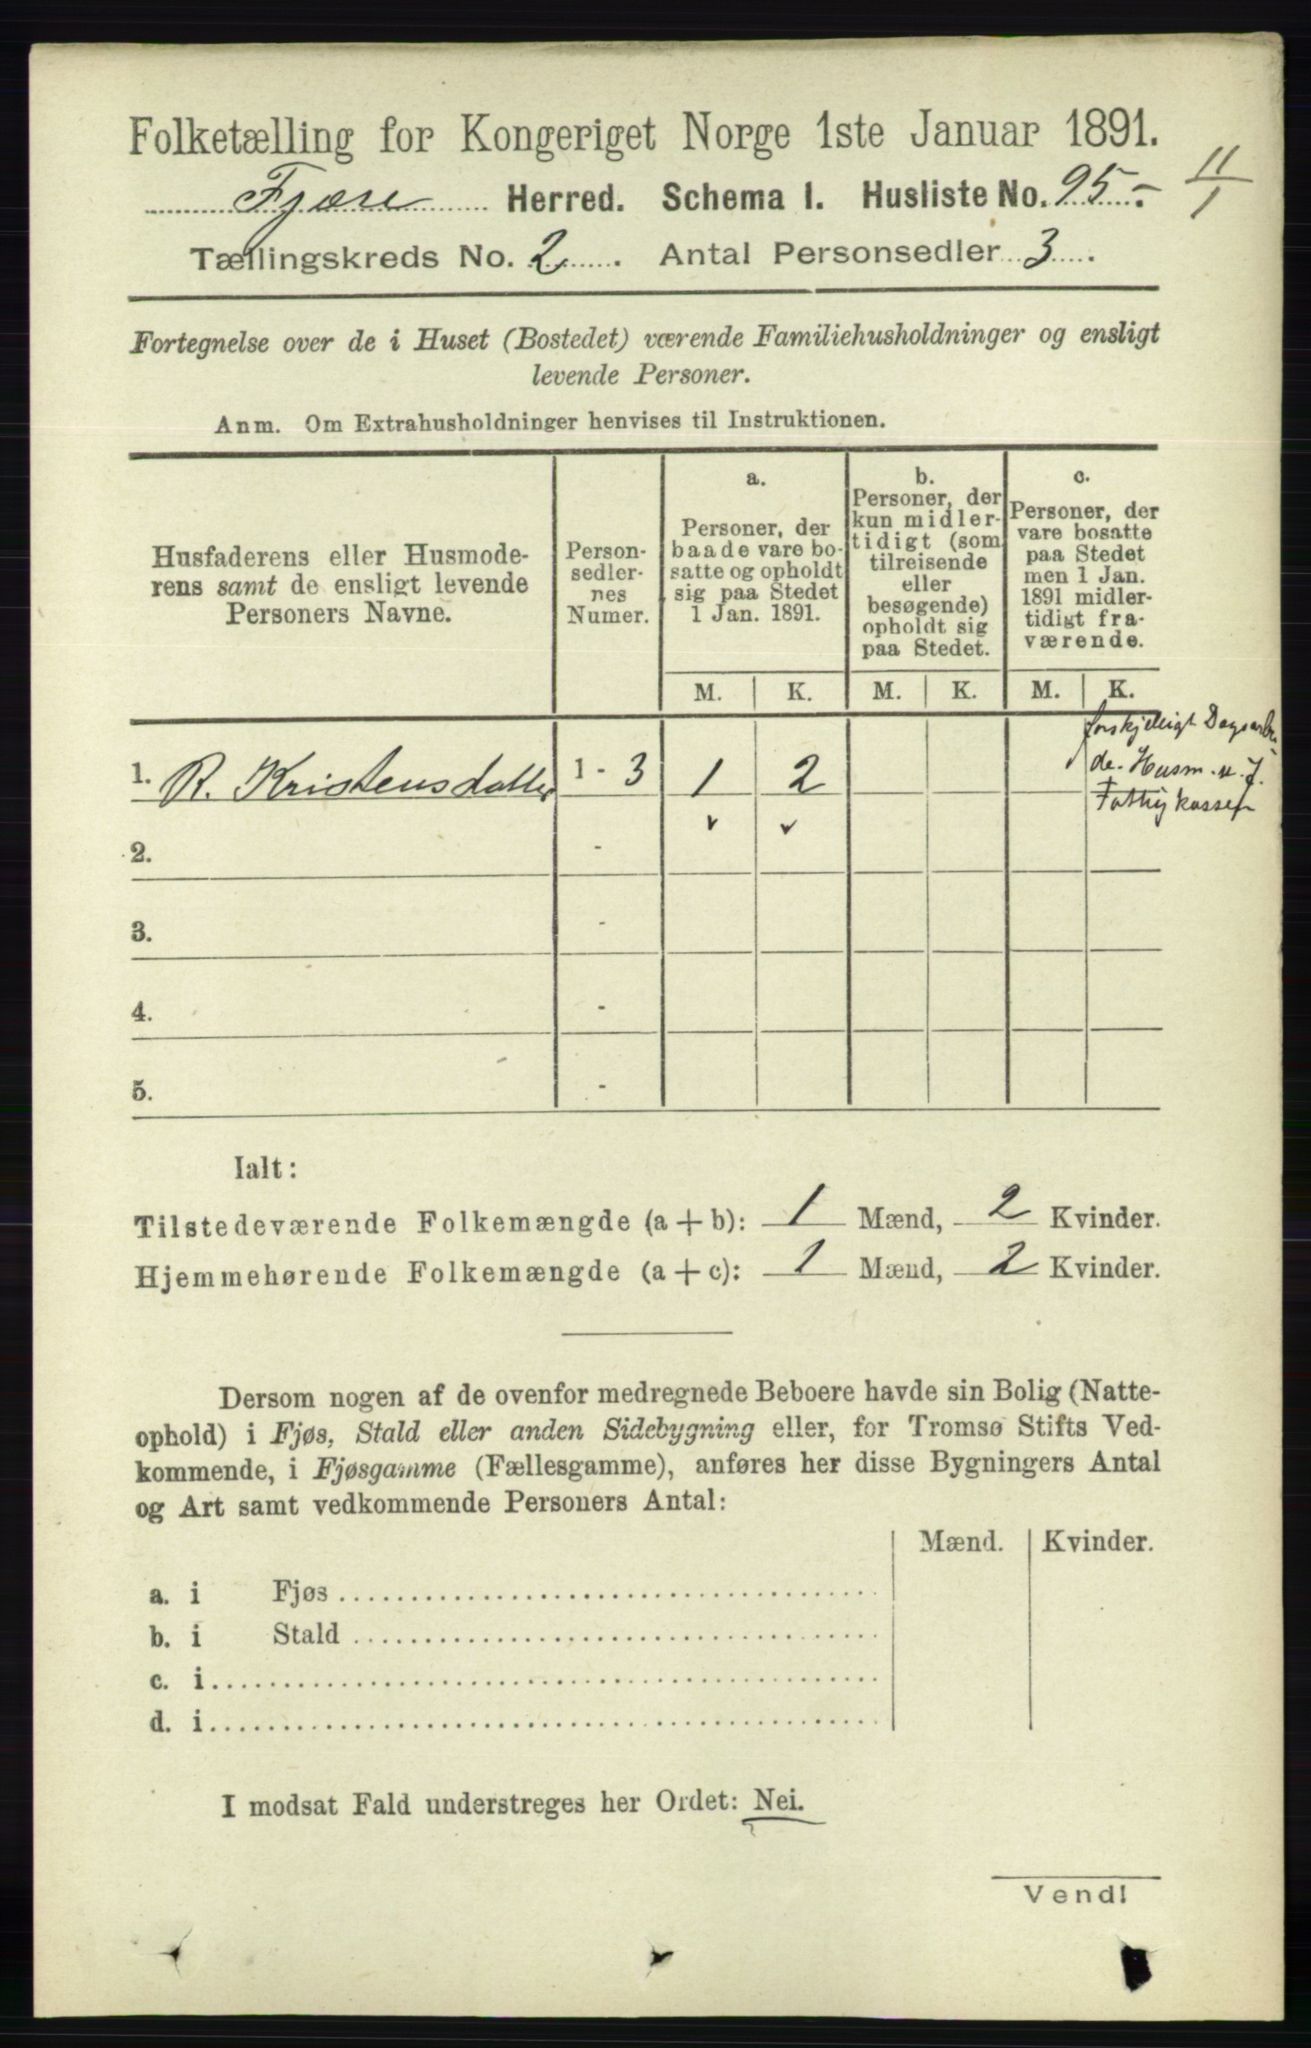 Folketælling for Kongeriget Norge 1ste Januar 1891.
Fjære Herred. Schema 1. Husliste No. 95.- 11/1
Tællingskreds No. 2. Antal Personsedler 3.
Fortegnelse over de i Huset (Bostedet) værende Familiehusholdninger og ensligt
levende Personer.
Anm. Om Extrahusholdninger henvises til Instruktionen.
Husfaderens eller Husmode-
rens samt de ensligt levende
Personers Navne.
Person-
sedler-
nes
Numer.
a.
Personer, der
baade vare bo-
satte og opholdt
sig paa Stedet
1 Jan. 1891.
b.
Personer, der
kun midler-
tidigt (som
tilreisende
eller
besøgende)
opholdt sig
paa Stedet.
c.
Personer, der
vare bosatte
paa Stedet
men 1 Jan.
1891 midler-
tidigt fra-
værende.
M. K. M. K. M. K.
1. R. Kristensdatter 1 - 3 1 2
forskjelligt
de. Husm. u. J.
2. -
3. -
4. -
5. -
Ialt:
Tilstedeværende Folkemængde (a + b): 1 Mænd, 2 Kvinder.
Hjemmehørende Folkemængde (a + c): 1 Mænd, 2 Kvinder.
Dersom nogen af de ovenfor medregnede Beboere havde sin Bolig (Natte-
ophold) i Fjøs, Stald eller anden Sidebygning eller, for Tromsø Stifts Ved-
kommende, i Fjøsgamme (Fællesgamme), anføres her disse Bygningers Antal
og Art samt vedkommende Personers Antal:
Mænd. Kvinder.
a. i Fjøs
b. i Stald
c. i
d. i
I modsat Fald understreges her Ordet: Nei.
Vend!